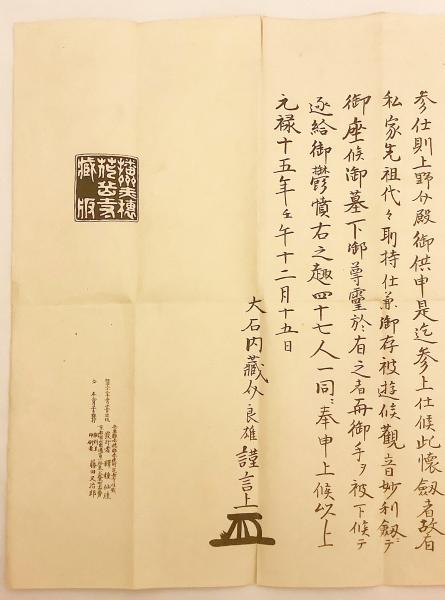 参仕則上野介殿御供申是迄参上仕候此懐劔者故有
私家先祖代々所持仕兼御存被遊候觀音妙利劔デ
御座候御墓下御尊靈於有之者再御手ヲ被下候テ
遂給御鬱憤右之趣四十七人一同ニ奉申上候以上
元禄十五年壬午十二月十五日
大石内藏介良雄謹言上
播赤穂
花岳寺
藏版
發行者 釋種仙
印刷者 藤田又治郎